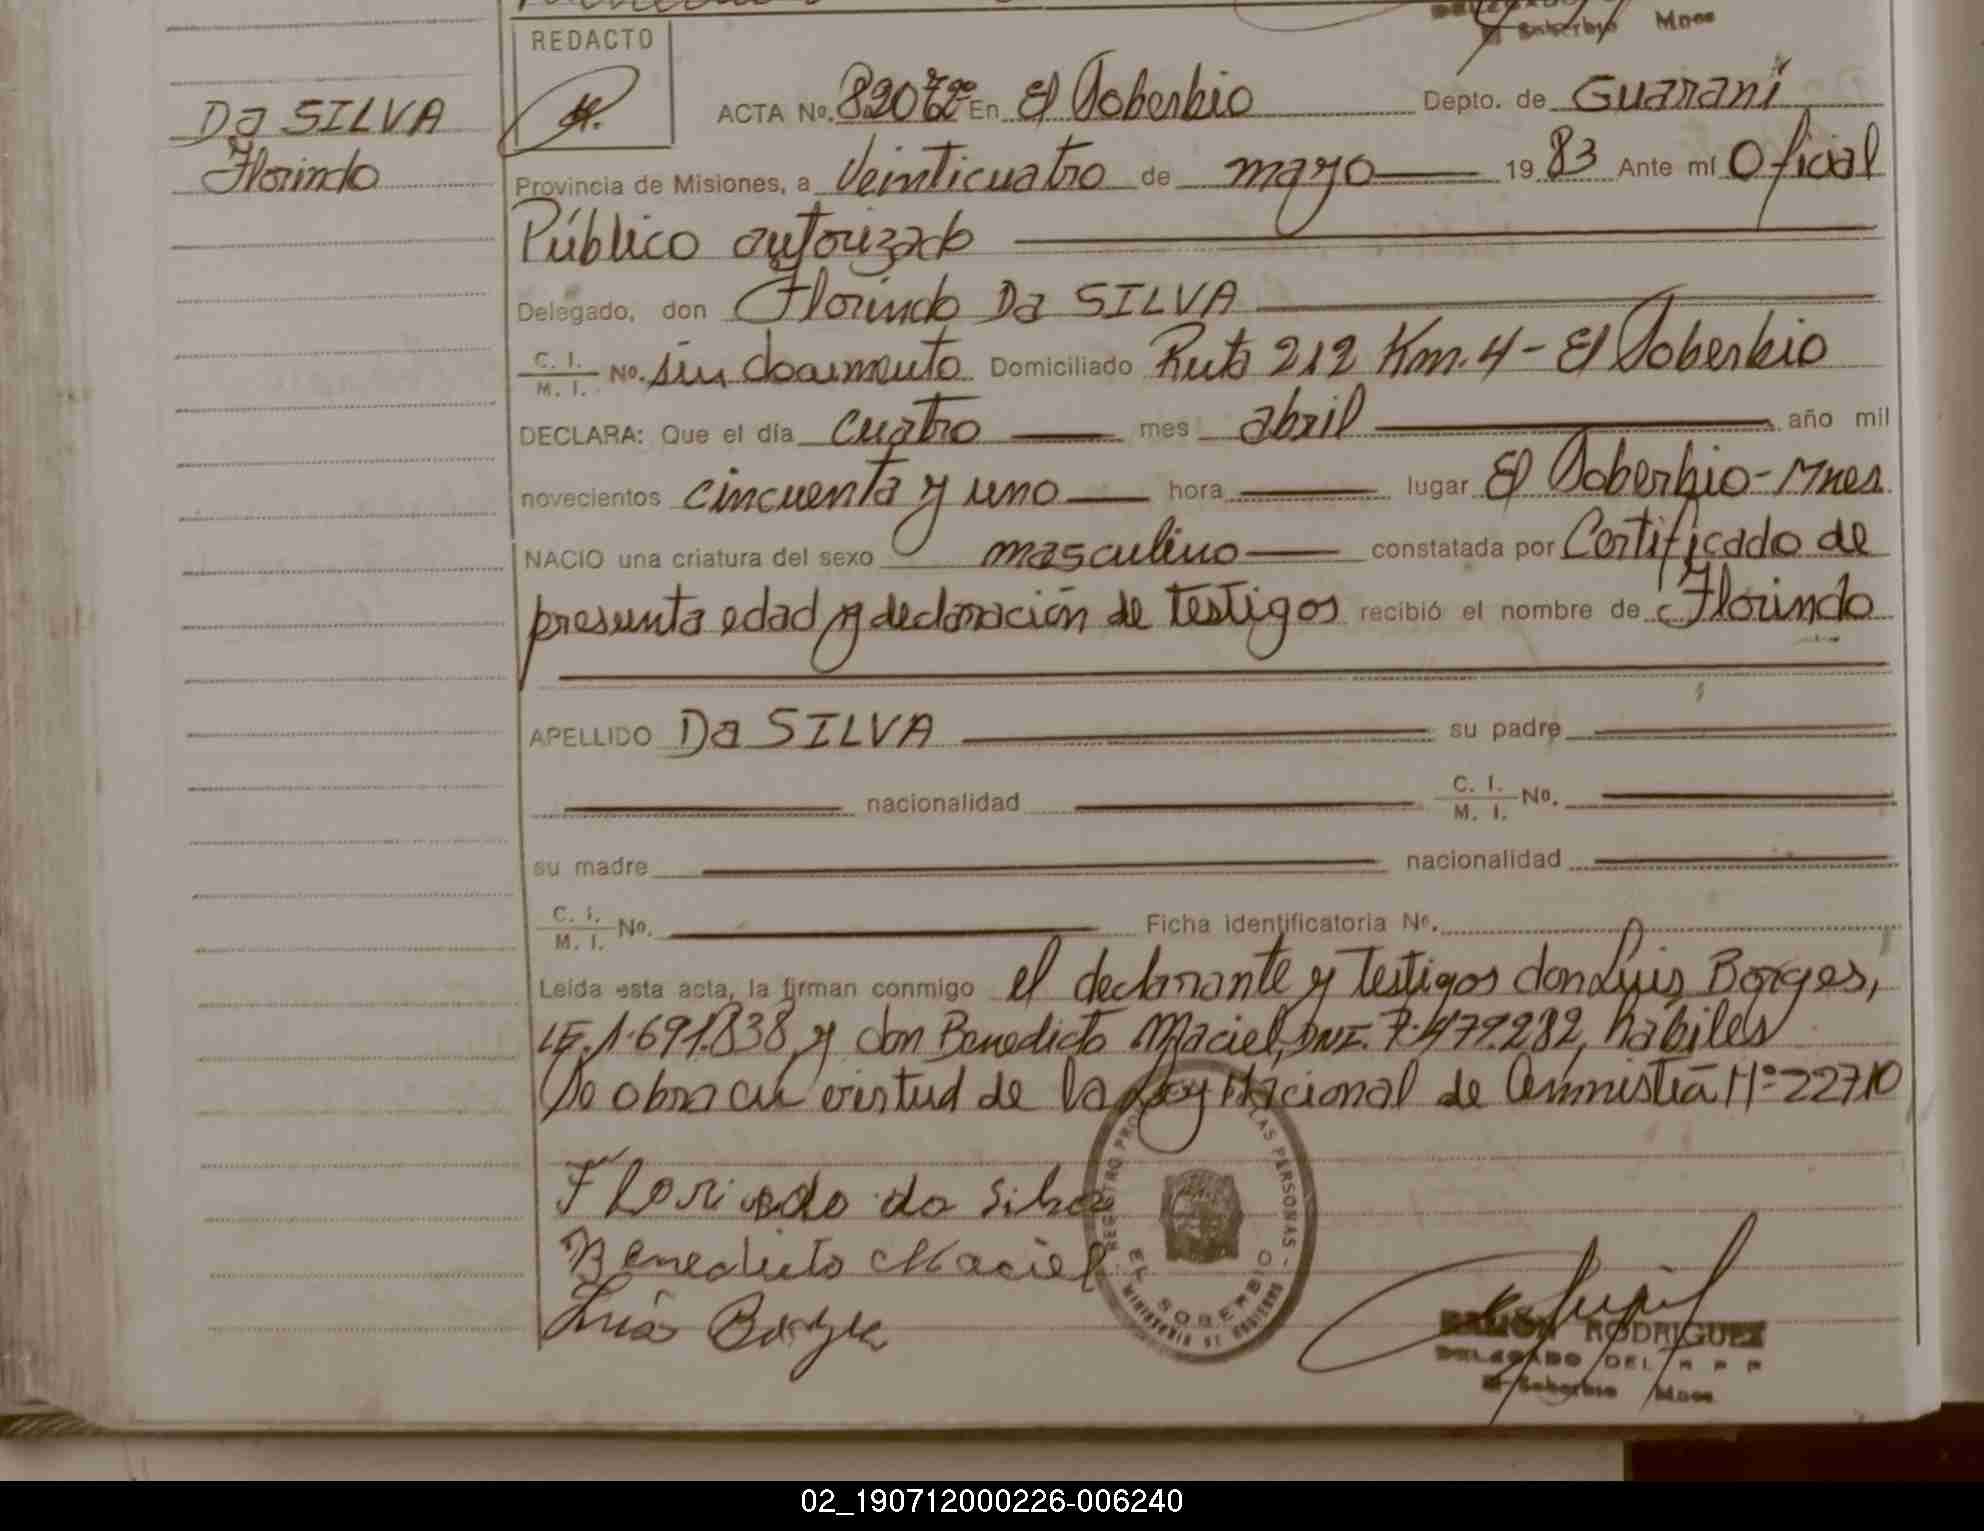 El Soberbio Mnes
REDACTO
Da SILVA
Florindo
ACTA No. 820 En El Soberbio Depto. de Guaraní
Provincia de Misiones, a Veinticuatro de mayo 1983 Ante mí Oficial
Público autorizado
Delegado, don Florindo Da SILVA
C. I. / M. I. No. sin documento Domiciliado Ruta 212 Km. 4 - El Soberbio
DECLARA: Que el día cuatro mes abril año mil
novecientos cincuenta y uno hora lugar El Soberbio - Mnes
NACIO una criatura del sexo masculino constatada por Certificado de
presunta edad y declaración de testigos recibió el nombre de Florindo
APELLIDO Da SILVA su padre
nacionalidad C. I. / M. I. No.
su madre nacionalidad
C. I. / M. I. No. Ficha identificatoria No.
Leída esta acta, la firman conmigo el declarante y testigos don Luis Borges,
LE. 1.691.838 y don Benedicto Maciel, DNI. 7.479.282, hábiles
Se obra en virtud de la Ley Nacional de Amnistía Nº 22710
Florindo da Silva
Benedicto Maciel
Luis Borges
REGISTRO PRO LAS PERSONAS
EL SOBERBIO
MINISTERIO DE GOBIERNO
RAMON RODRIGUEZ
DELEGADO DEL R P P
El Soberbio Mnes
02_190712000226-006240